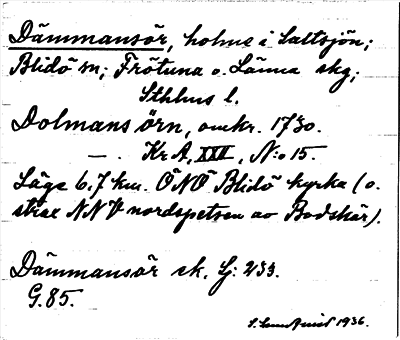 Dämmansör, holme i Saltsjön;
Blidö sn; Frötuna o. Länna skg;
Sthlms l.
Dolmans örn, omkr. 1730.
— . Kr A, XXII, N:o 15.
Läge 6,7 km. ÖNÖ Blidö kyrka (o.
strax NNV nordspetsen av Bodskär).
Dämmansör sk. Lj: 233.
G. 85.
S. Lundquist 1936.